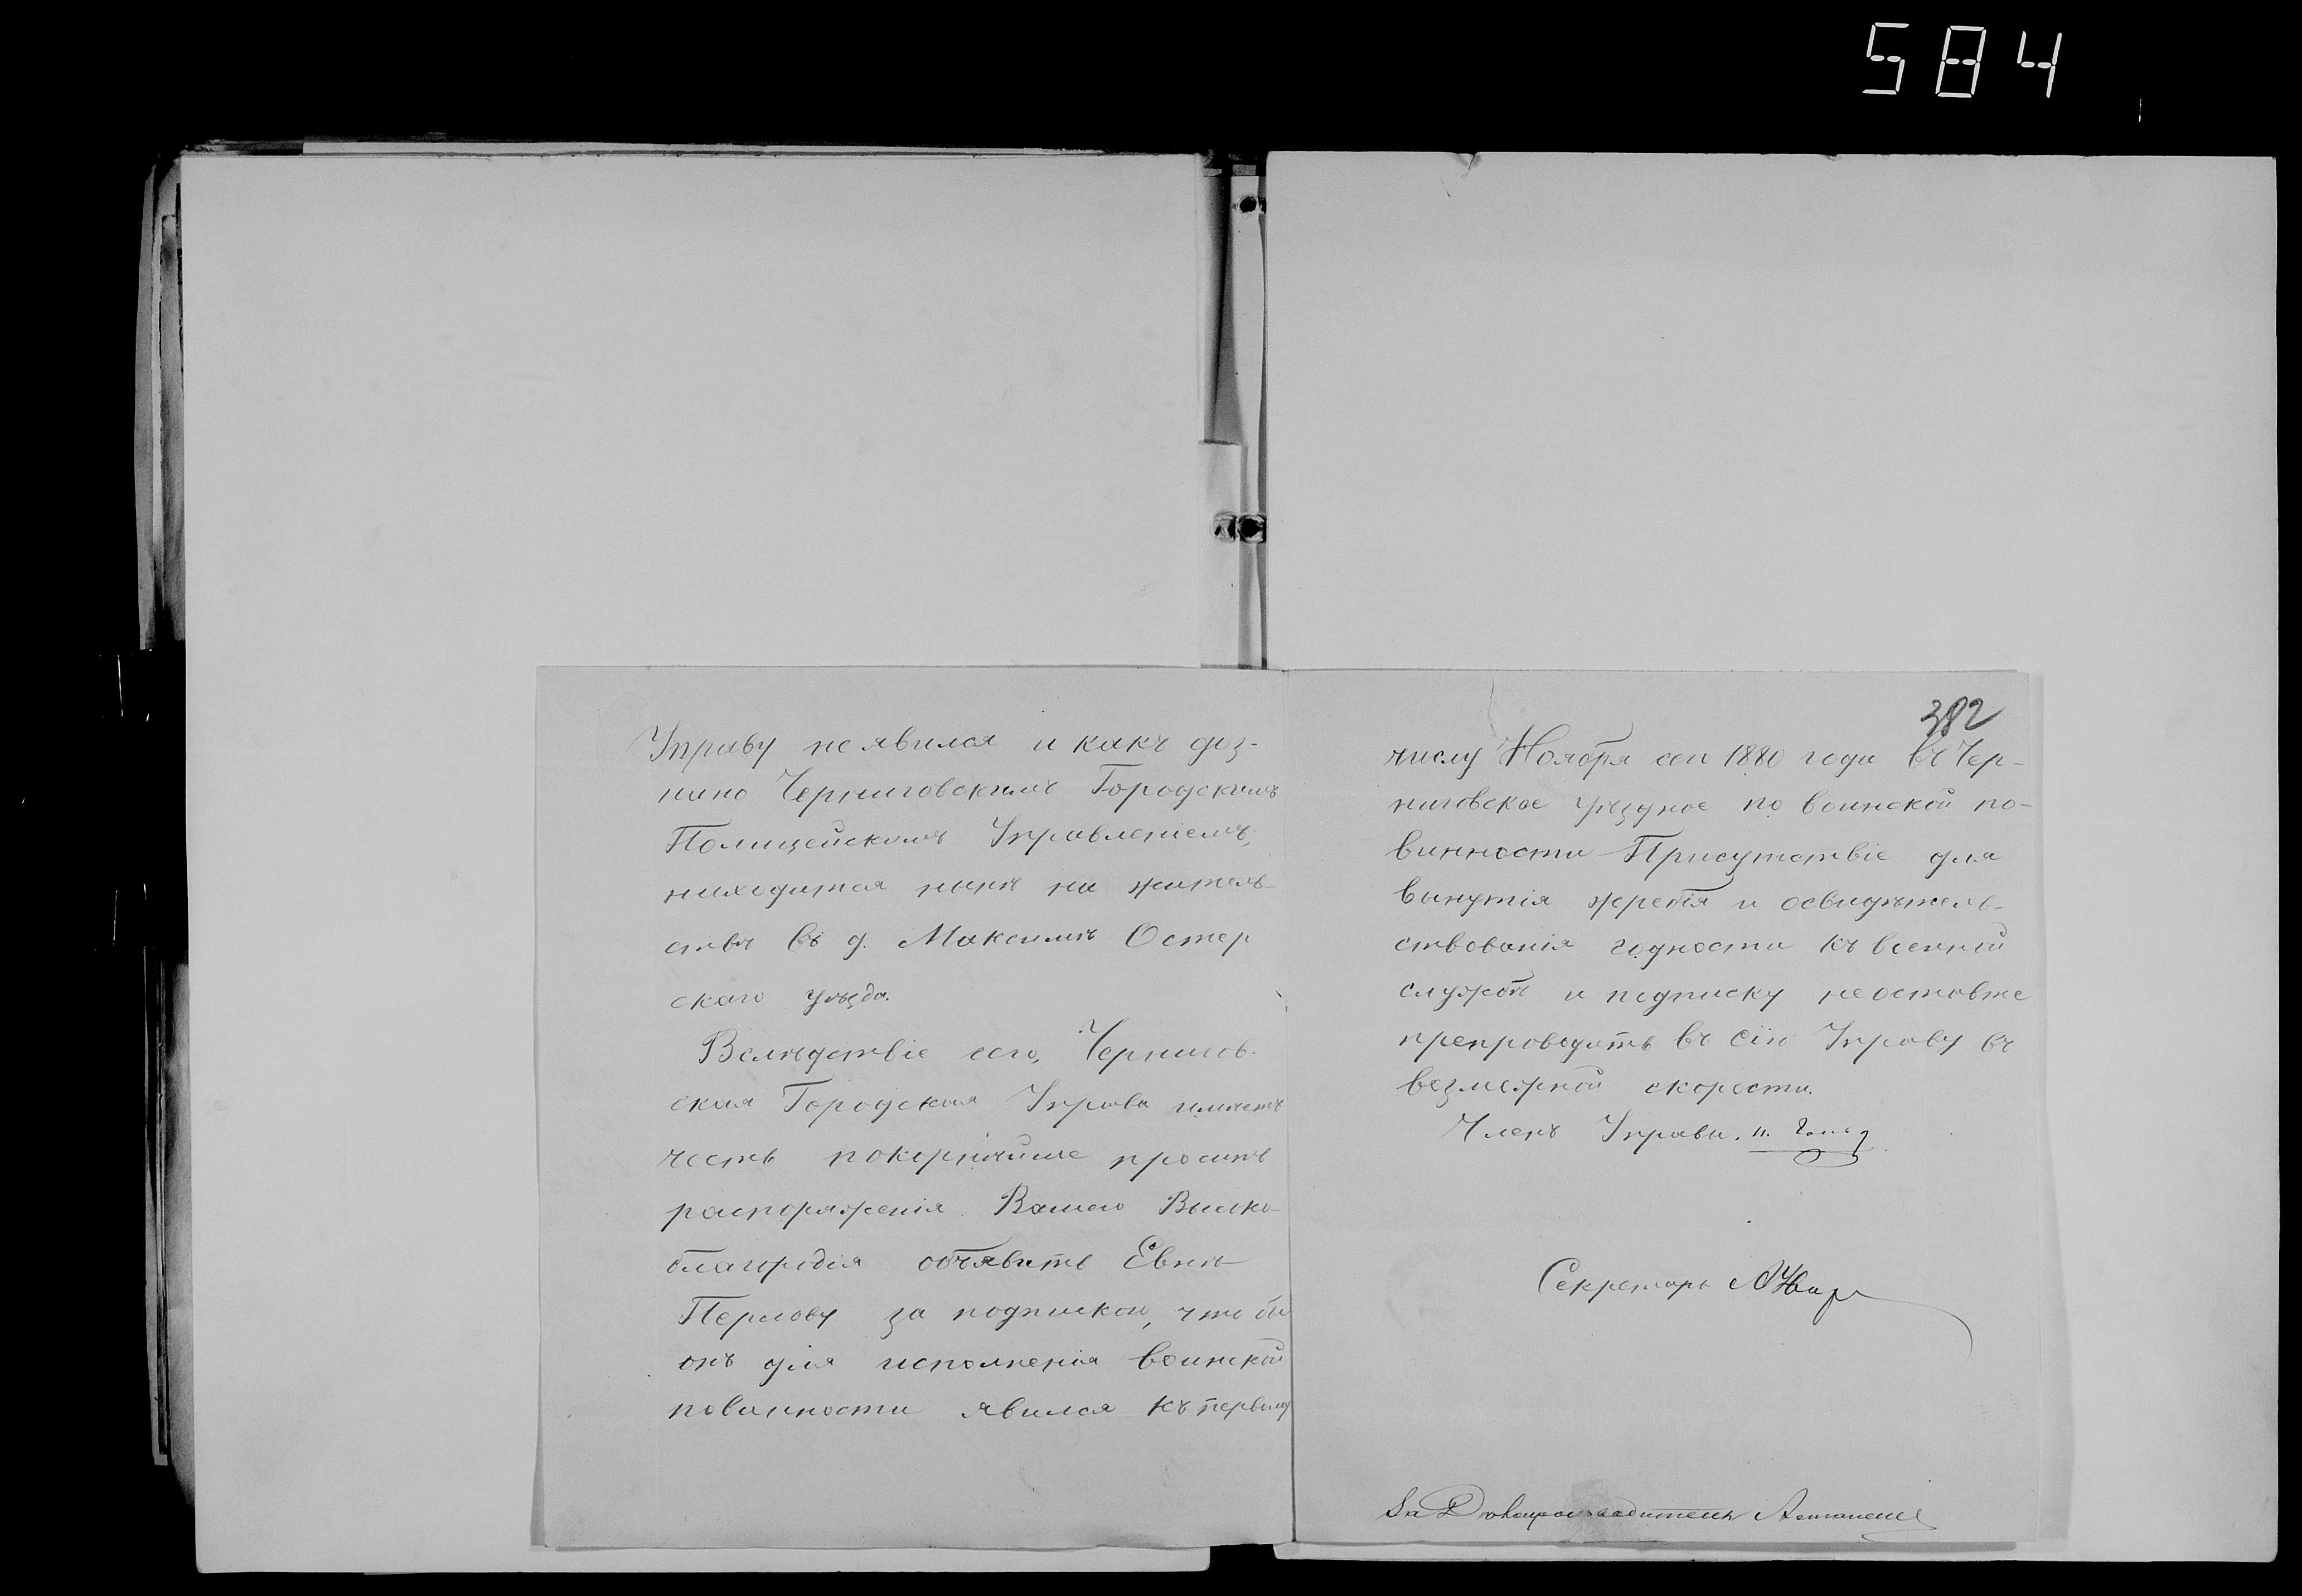 584
Управу не явился и какъ доз-
нано Черниговскимъ Городскимъ
Полицейскимъ Управленіемъ,
находится нынѣ на житель-
ствѣ въ д. Максимѣ Остер
скаго уѣзда.
Вслѣдствіе сего, Чернигов-
ская Городская Управа имѣетъ
честь покорнѣйше просить
распоряженія Вашего Высоко-
благородія объявить Евнѣ
Перлову за подпискою, что бы
онъ для исполненія воинской
повинности явился къ первому
382
числу Ноября сего 1880 года въ Чер-
ниговское уѣздное по воинской по-
винности Присутствіе для
вынутія жребія и освидѣтель-
ствованія годности къ военной
службѣ и подписку неоставте
препроводить въ сію Управу въ
возможной скорости.
Членъ Управы.
Секретарь
За Дѣлопроизводитель